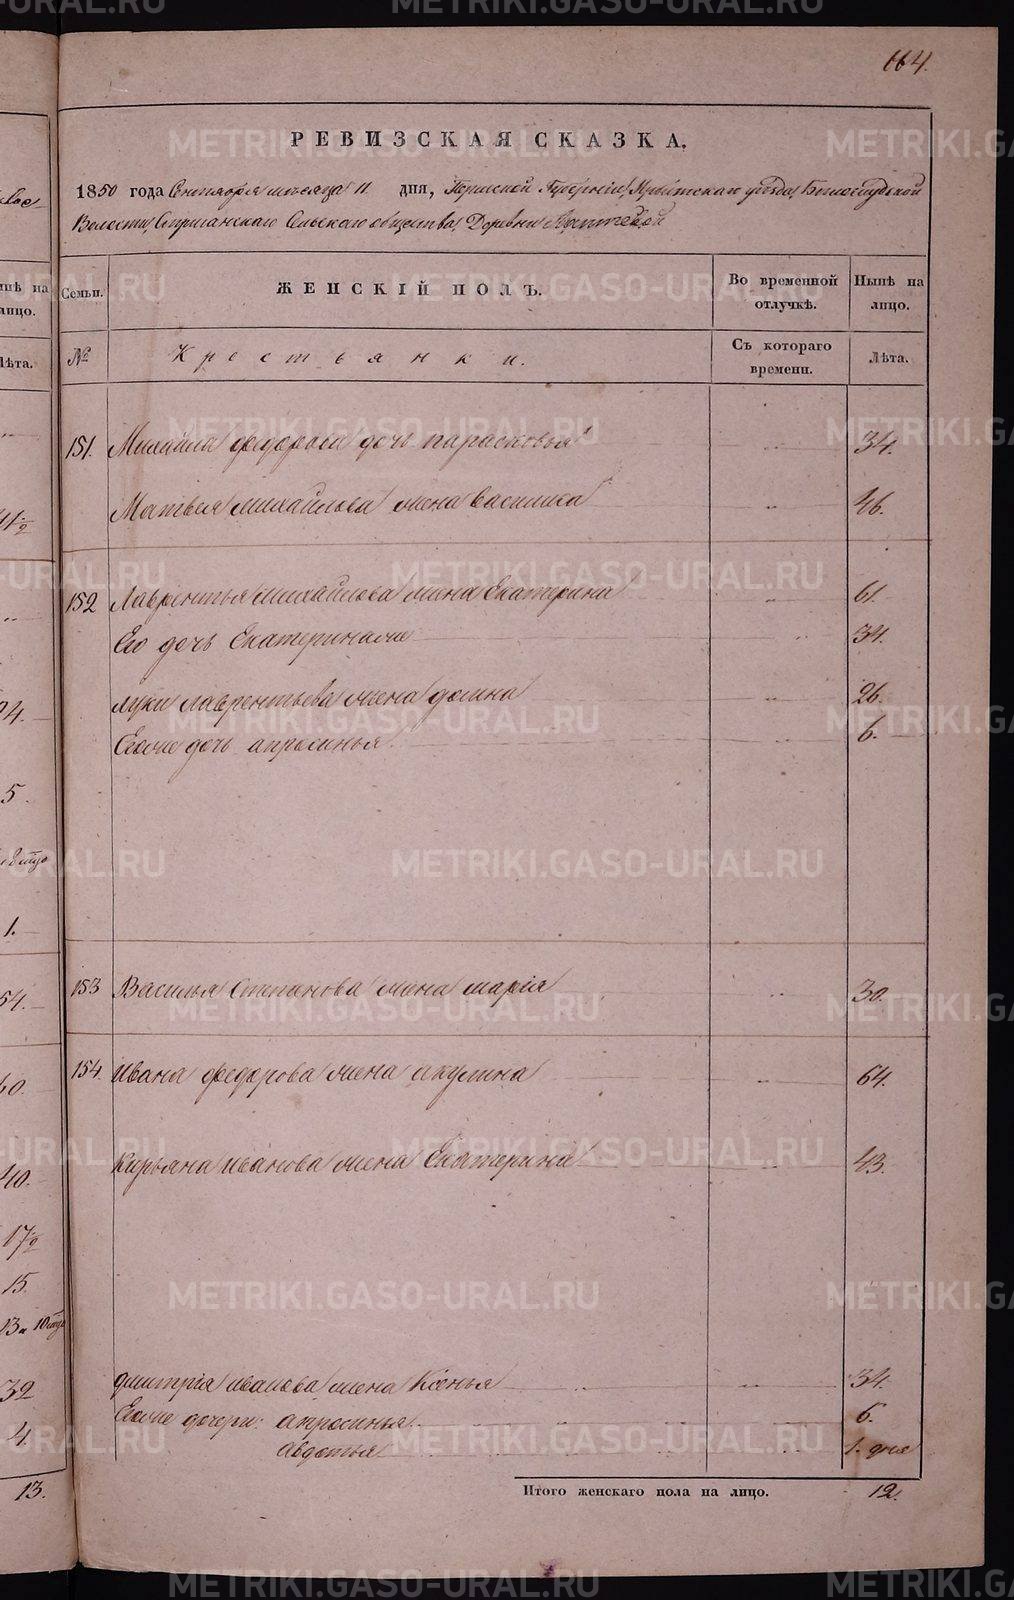 664.
РЕВИЗСКАЯ СКАЗКА.
1850 года Сентября месяца 11 дня, Пермской Губернии, Ирбитскаго уезда, Белослудской
Волости, Стриганскаго Сельскаго общества, Деревни
Семьи. ЖЕНСКІЙ ПОЛЪ. Во временной отлучкѣ. Нынѣ на лицо.
№ Крестьянки. Съ котораго времени. Лѣта.
151. Михайла федорова дочь парасковья " 34.
Матвея михайлова жена василиса " 46.
152 Лаврентья михайлова жена Екатерина " 61.
Его дочь Екатерина " 34.
луки лаврентьева жена домна " 26.
Ево же дочь апросинья " 6.
153 Василья Степанова жена марія " 30.
154. ивана федорова жена акулина " 64.
кирьяна иванова жена Екатерина " 43.
дмитрія иванова жена Ксенья " 34.
Ево же дочери: апросинья " 6.
авдотья " 1. дня
Итого женскаго пола на лицо. 12.
METRIKI.GASO-URAL.RU